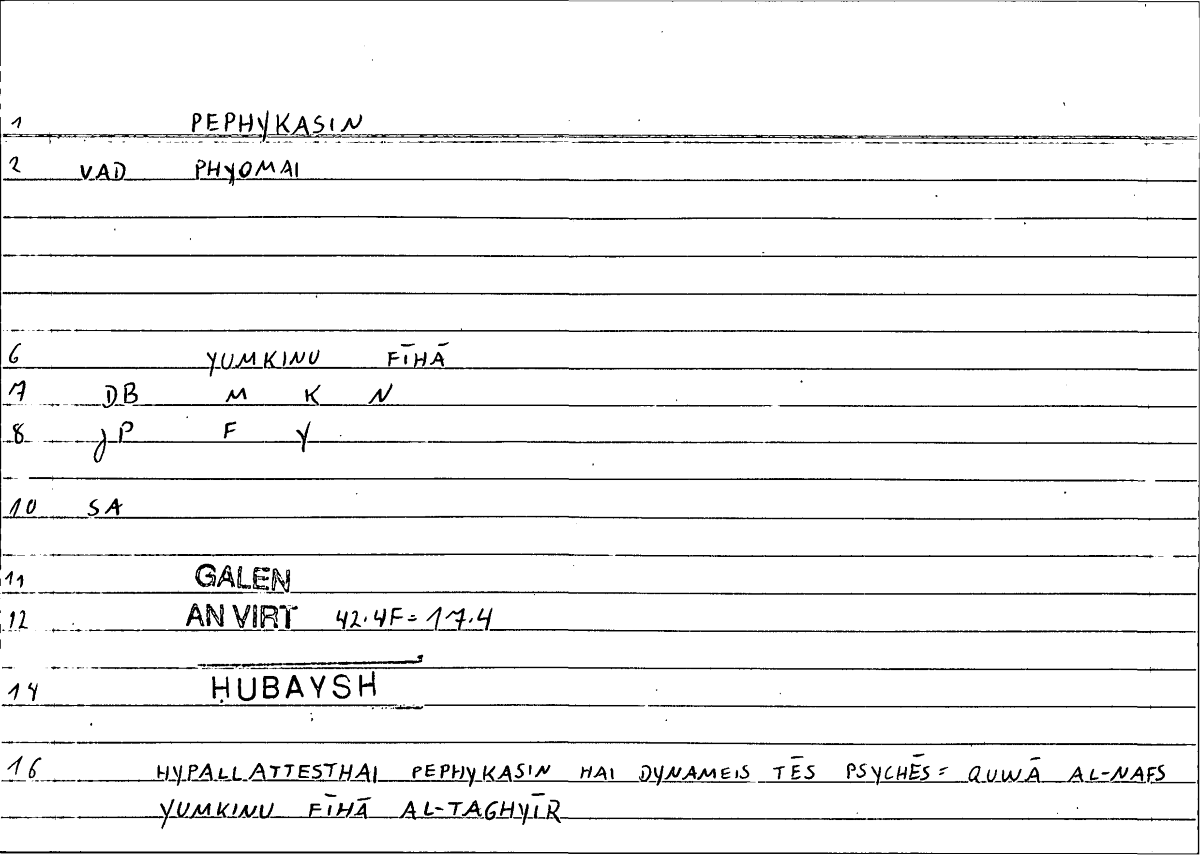 1 PEPHYKASIN
2 VAD PHYOMAI
6 YUMKINU FĪHĀ
7 DB M K N
8 JP F Y
10 SA
11 GALEN
12 AN VIRT 42.4F = 17.4
14 ḤUBAYSH
16 HYPALLATTESTHAI PEPHYKASIN HAI DYNAMEIS TĒS PSYCHĒS = QUWĀ AL-NAFS
YUMKINU FĪHĀ AL-TAGHYĪR